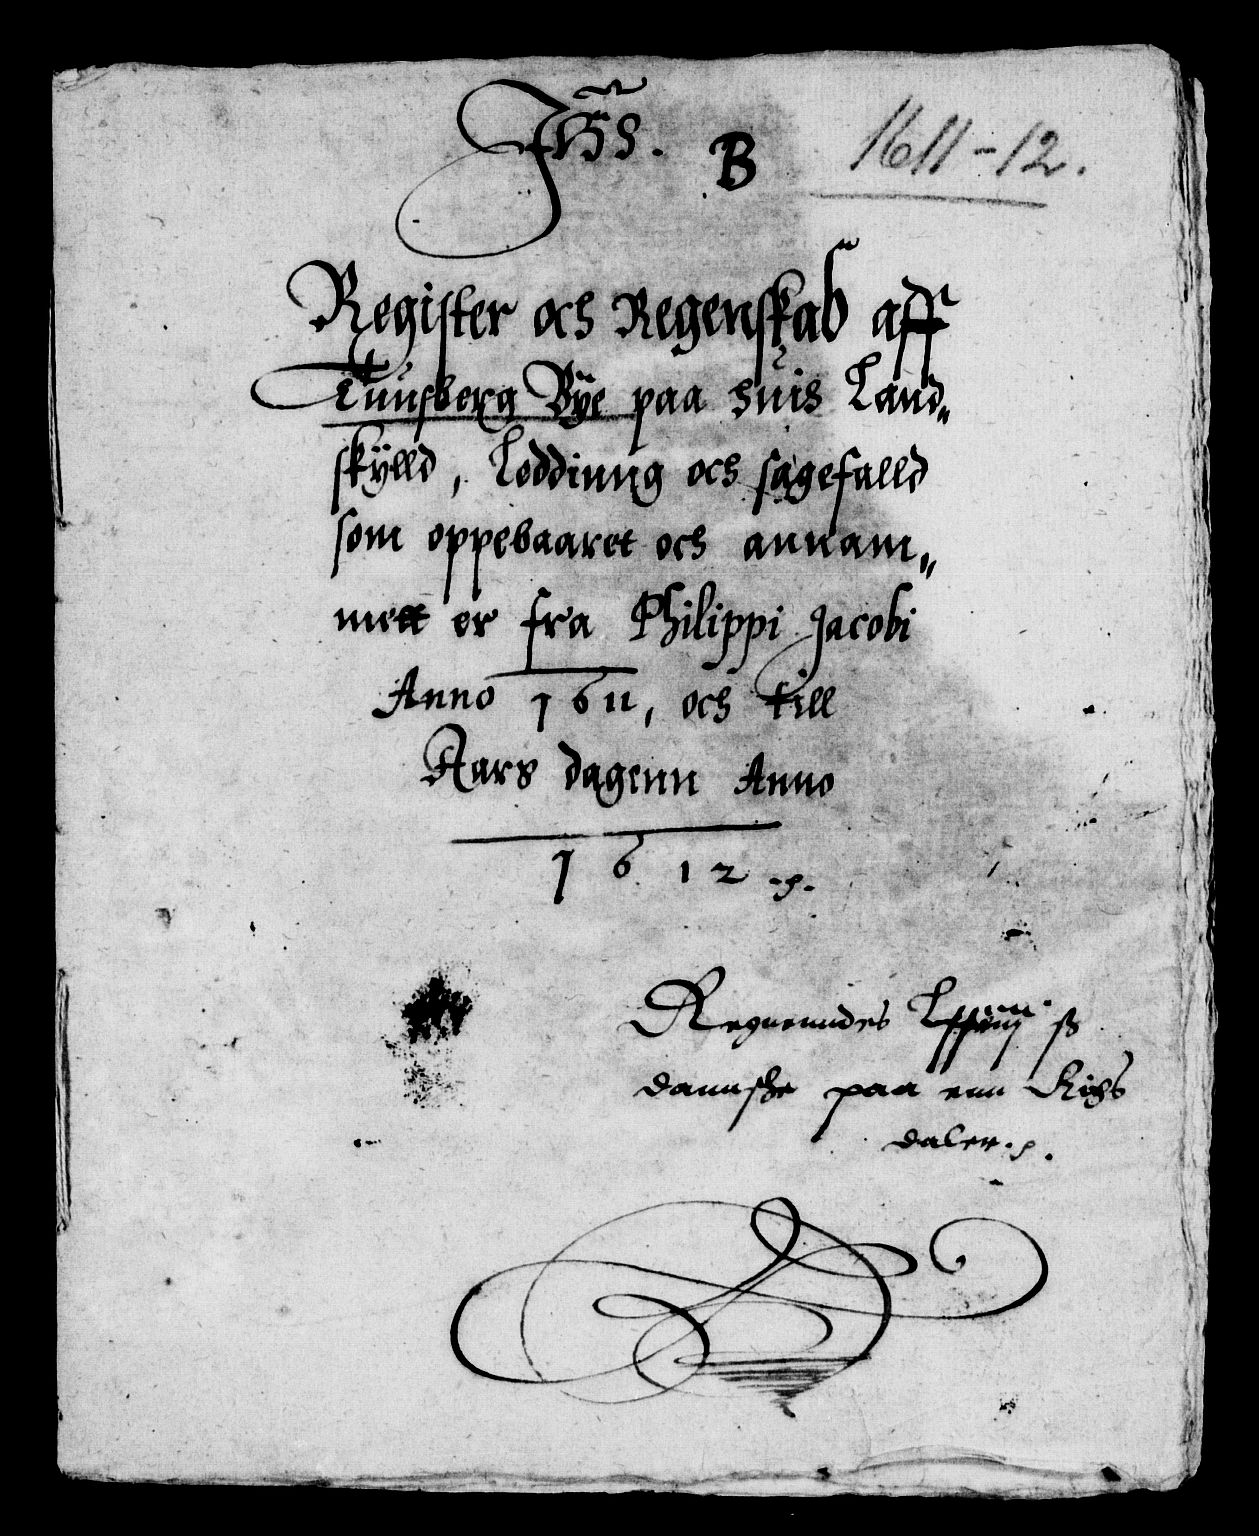 Jhs. B 1611-12.
Register och Regenskab aff
Tunsberg Bÿe paa huis Land„
skÿlld, Loddinng och sagefalld
som oppebaaret och annam„
mett er fra Philippi Jacobi
Anno 1611, och till
Aars dagenn Anno
1612.
Regnenndes ß
dannske paa enn Rigs
daler.